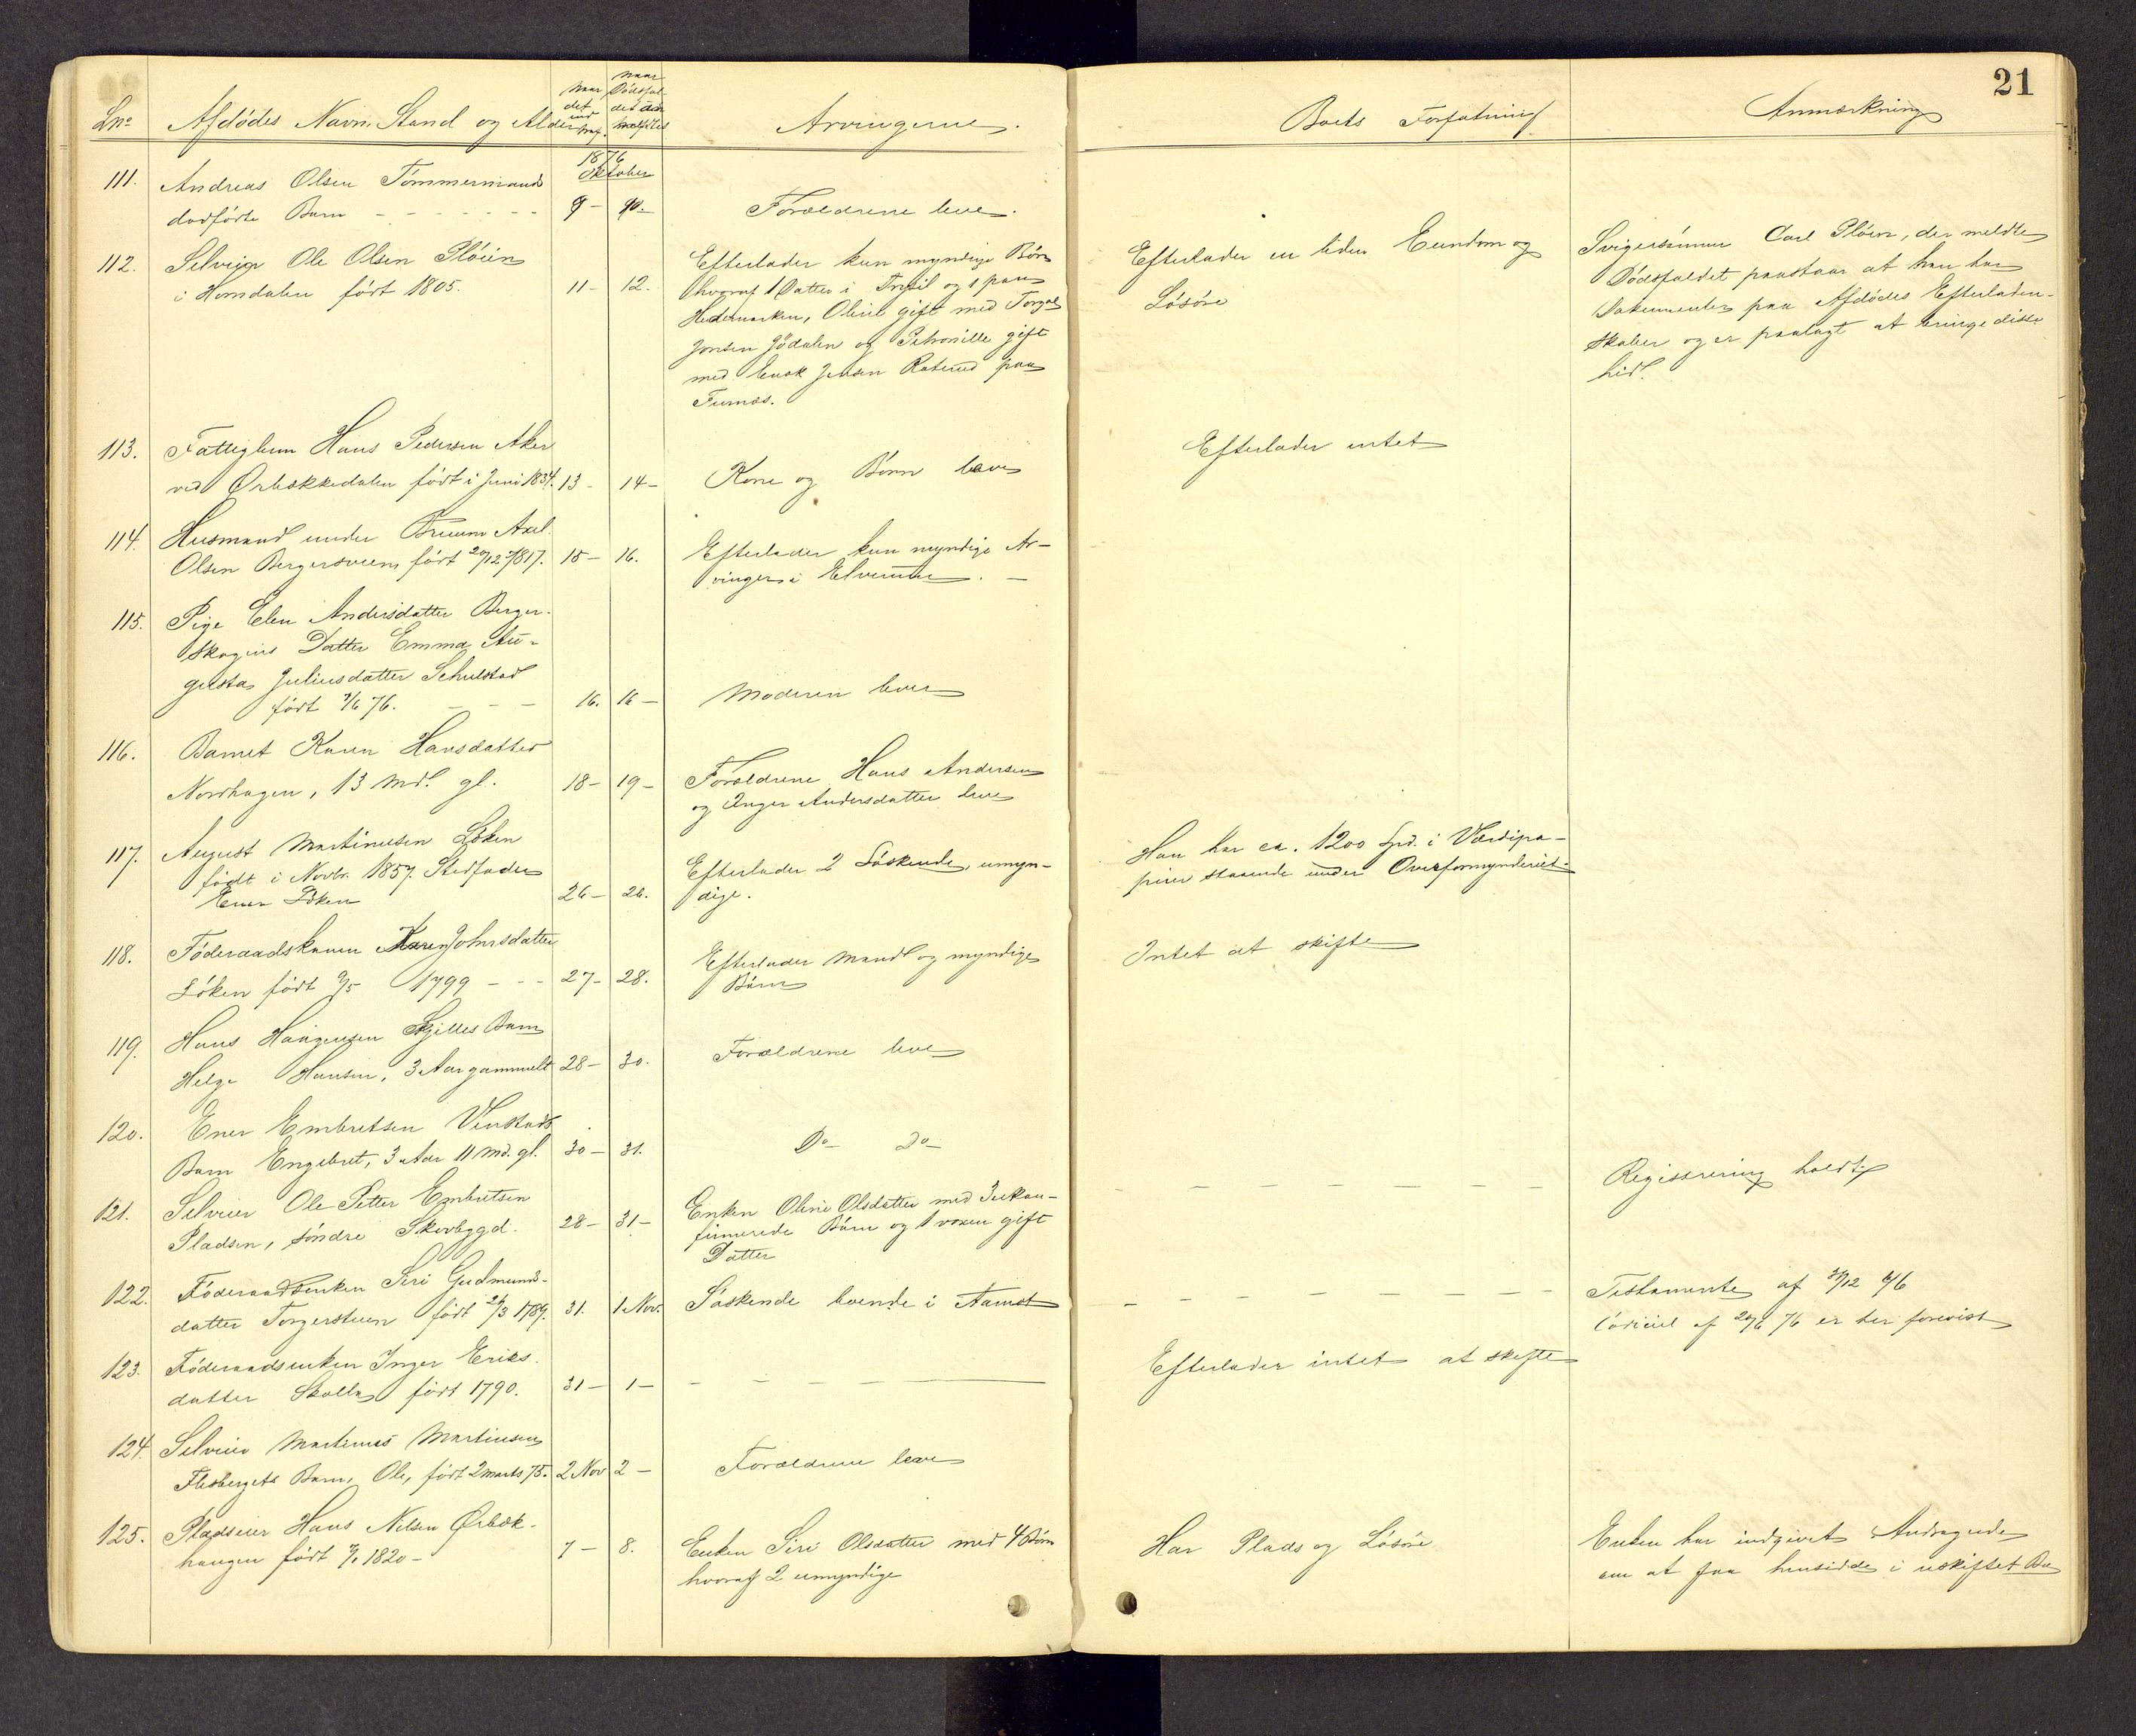 21
Lno
Afdødes Navn, Stand og Alder
Naar det indtraf.
Naar Dødsfaldet anmeldtes
Arvingerne.
Boets Forfatning
Anmærkning
1876
Oktober
111. Andreas Olsen Tømmermands
dødfødte Barn - - - - - - 9 - 90.-
Forældrene leve.
112. Selveier Ole Olsen Pløien
i Horndalen født 1805. 11- 12.
Efterlader kun myndige Børn
hvoraf 1 Datter i Trysil og 1 paa
Hedemarken, Oline gift med Torgal
Jonsen Jødalen og Petronille gift
med Enok Jensen Roterud paa
Furnæs.
Efterlader en liden Eiendom og
Løsøre
Svigersønnen Carl Pløen, der meldte
Dødsfaldet paastaar at han har
Dokumenter paa Afdødes Efterladen-
skaber og er paalagt at bringe disse
hid.
113. Fattiglem Hans Pedersen Aker
ved Ørbækkedalen født i Juni 1834. 13- 14-
Kone og Børn leve
Efterlader intet
114. Husmand under Bruun Axel
Olsen Bergersveen, født 20/12 1817. 15- 16.
Efterlader kun myndige Ar-
vinger i Elverum. -
115. Pige Elen Andersdatter Berger-
skogens Datter Emma Au-
gusta Juliusdatter Schulstad
født 3/6 76. - - - 16. 16 -
Moderen lever
116. Barnet Karen Hansdatter
Nordhagen, 13 Md. gl. 18- 19-
Forældrene Hans Andersen
og Inger Andersdatter leve
117. August Martinusen Løken
født i Novbr. 1857. Stedfader
Ener Løken 26- 26.
Efterlader 2 Søskende, umyn-
dige.
Han har ca. 1200 Spd. i Værdipa-
pirer staaende under Overformynderiet
118. Føderaadskonen Karen Johnsdatter
Løken født 9/5 1799 - - - 27- 28.
Efterlader Mand og myndige
Børn
Intet at skifte
119. Hans Haagensen Skjilles Barn
Helge Hansen, 3 Aar gammelt 28- 30.
Forældrene leve
120. Ener Embretsen Venstads
Barn Engebret, 3 Aar 11 Md. gl. 30- 31.
Do- Do-
121. Selveier Ole Petter Embretsen
Pladsen, søndre Skovbygd. 28- 31-
Enken Oline Olsdatter med 3 ukon-
firmerede Børn og 1 voxen gift
Datter
- - - - - - - -
Registrering holdt
122. Føderaadsenken Siri Gudmunds-
datter Torgerstuen født 26/3 1789. 31. 1 Nov.
Søskende boende i Aamot
- - - - - - - -
Testamente af 31/12 66
Codicil af 20/6 76 er her forevist
123. Føderaadsenken Inger Eriks-
datter Skolla født 1790. 31- 1-
- - - -
Efterlader intet at skifte
124. Selveier Martinus Martinsen
Flisbergets Barn, Ole, født 2 Marts 75. 2 Nov 2 -
Forældrene leve
125. Pladseier Hans Nilsen Ørbæk-
haugen født 1820- 7- 8.
Enken Siri Olsdatter med 4 Børn
hvoraf 2 umyndige
Har Plads og Løsøre
Enken har indgivet Andragende
om at faa hensidde i uskiftet Bo